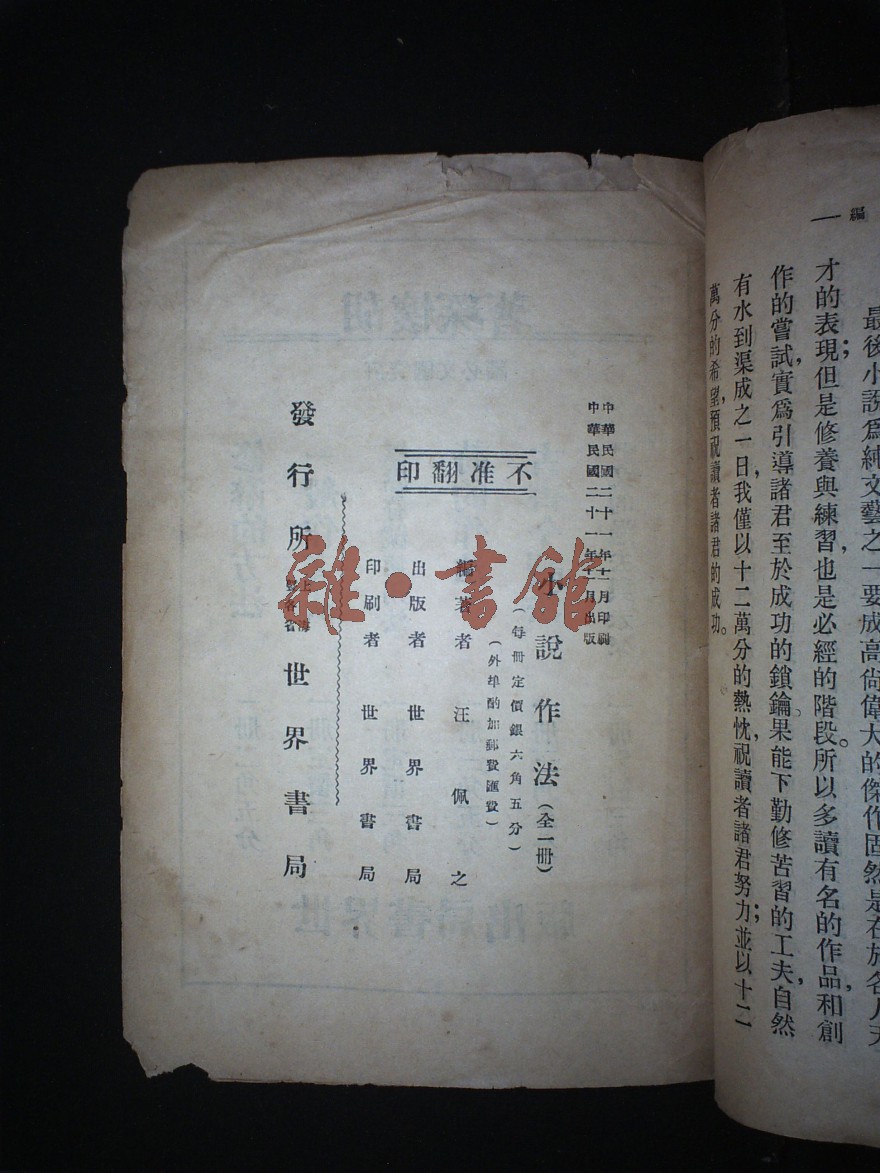 編
最後小說爲純文藝之一要成高尙偉大的傑作固然是在於各人天
才的表現；但是修養與練習，也是必經的階段。所以多讀有名的作品，和創
作的嘗試，實爲引導諸君至於成功的鎖鑰。果能下勤修苦習的工夫，自然
有水到渠成之一日，我僅以十二萬分的熱忱，祝讀者諸君努力；並以十二
萬分的希望，預祝讀者諸君的成功。
中華民國二十一年十一月印刷
中華民國二十一年十一月出版
小說作法（全一冊）
（每冊定價銀六角五分）
（外埠酌加郵費匯費）
不准翻印
編著者 汪佩之
出版者 世界書局
印刷者 世界書局
發行所 上海暨各省 世界書局
雜·書館